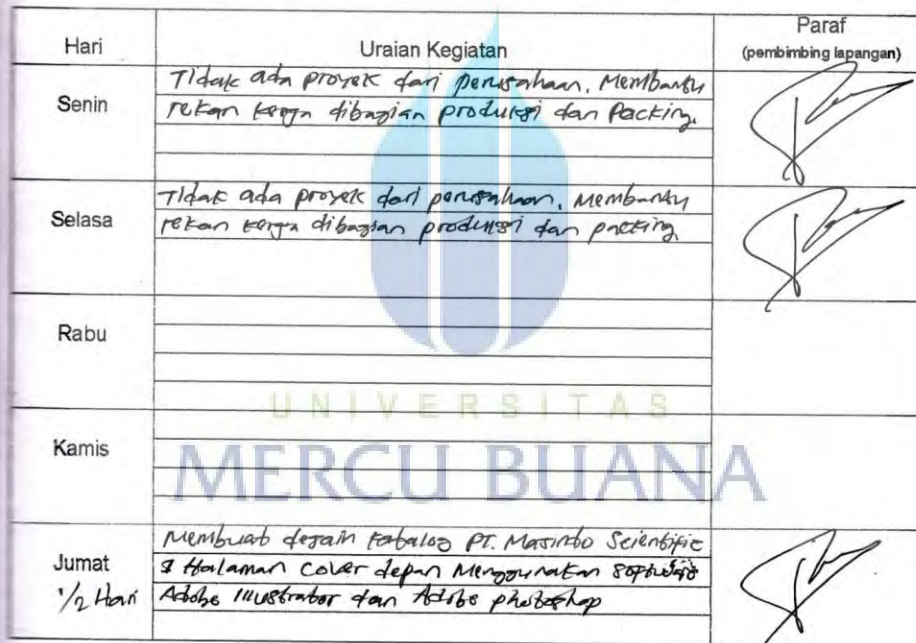 Hari
Uraian Kegiatan
Paraf
(pembimbing lapangan)
Senin
Tidak ada proyek dari perusahaan. Membantu
rekan kerja dibagian produksi dan Packing.
Selasa
Tidak ada proyek dari perusahaan. Membantu
rekan kerja dibagian produksi dan packing
Rabu
UNIVERSITAS
Kamis
MERCU BUANA
Jumat
1/2 Hari
Membuat desain katalog PT. Masindo Scientific
Halaman cover depan Menggunakan software
Adobe Illustrator dan Adobe photoshop